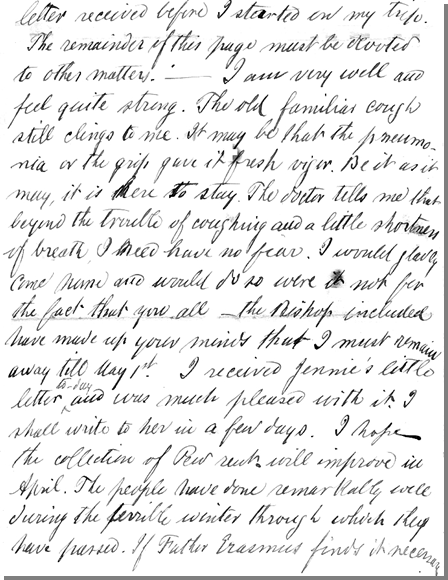 letter received before I started on my trip.
The remainder of this page must be devoted
to other matters. — I am very well and
feel quite strong. The old familiar cough
still clings to me. It may be that the pneumo-
nia or the grip gave it fresh vigor. Be it as it
may, it is here to stay. The doctor tells me that
beyond the trouble of coughing and a little shortness
of breath, I need have no fear. I would gladly
come home and would do so were it not for
the fact that you all – the Bishop included
have made up your minds that I must remain
away till May 1st. I received Jennie's little
to-day
letter and was much pleased with it. I
shall write to her in a few days. I hope
the collection of Pew rent will improve in
April. The people have done remarkably well
during the terrible winter through which they
have passed. If Father Erasmus finds it necessary